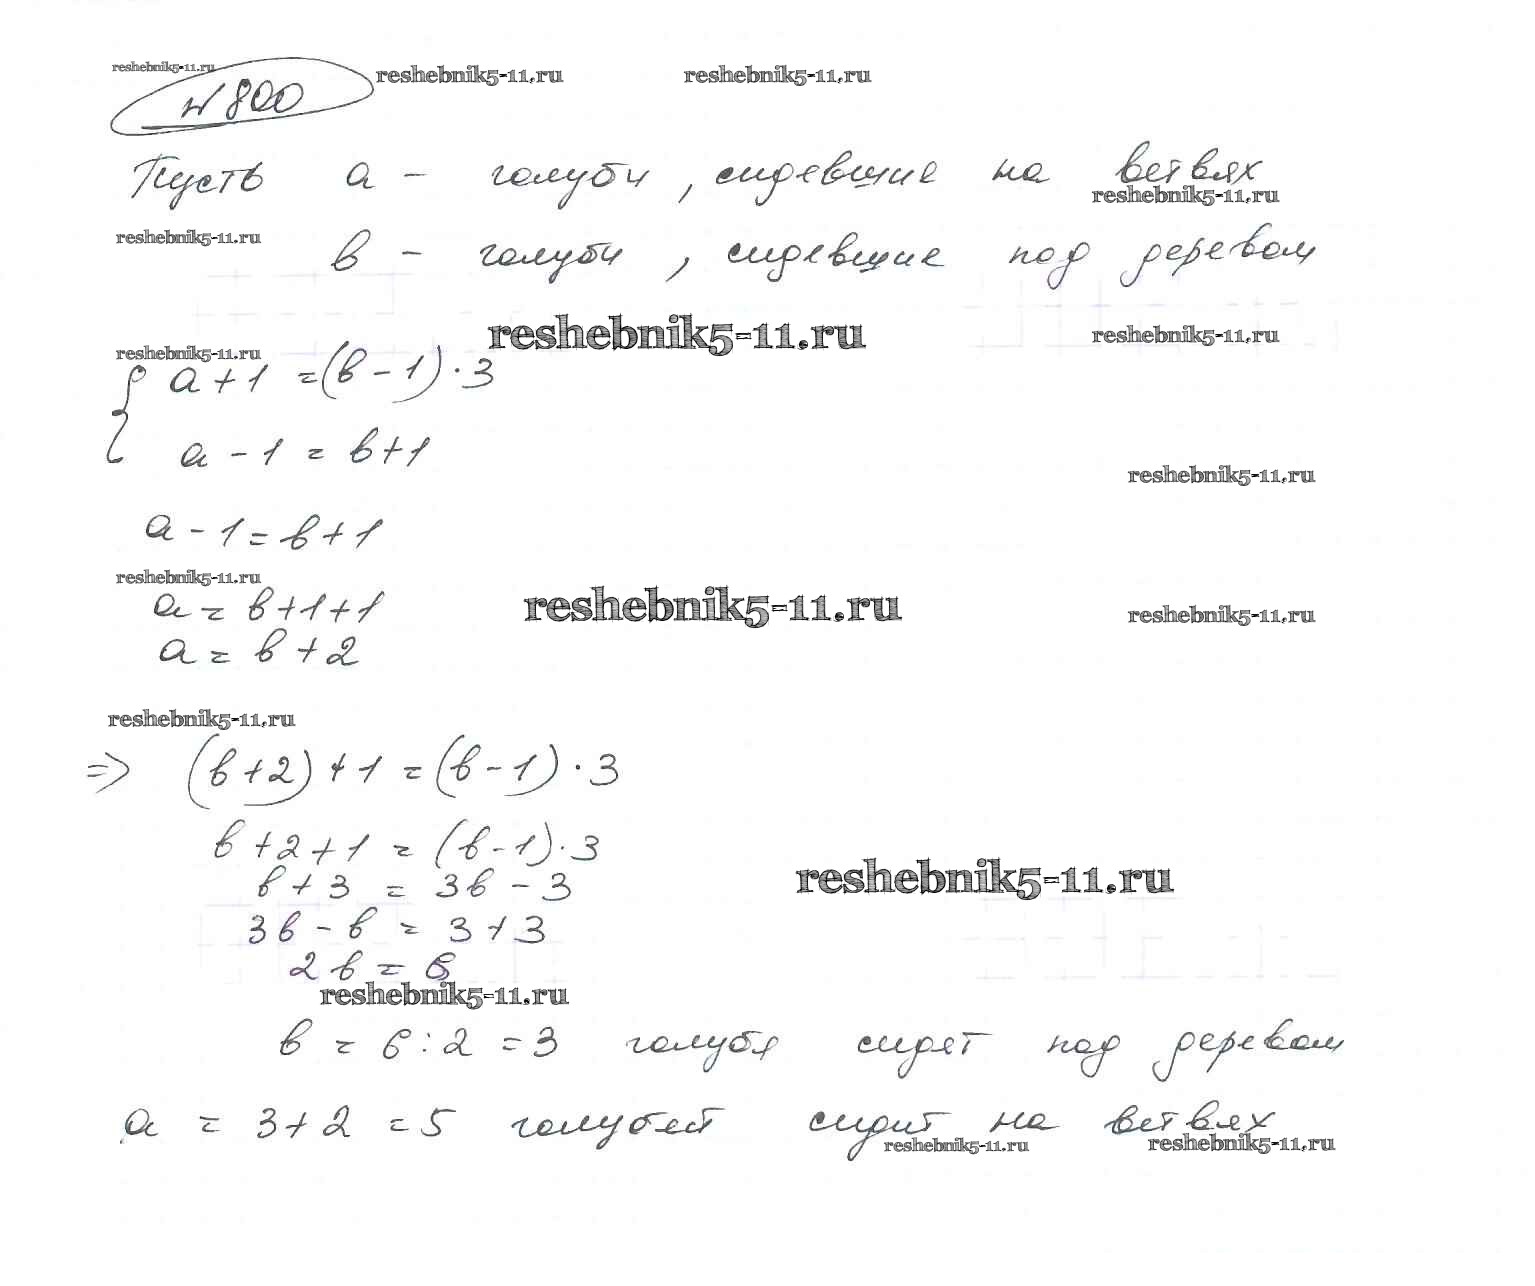 reshebnik5-11.ru
reshebnik5-11.ru reshebnik5-11.ru
№ 800
Пусть а - голуби, сидевшие на ветвях
reshebnik5-11.ru
reshebnik5-11.ru
в - голуби, сидевшие под деревом
reshebnik5-11.ru reshebnik5-11.ru
reshebnik5-11.ru
{ а + 1 = (в - 1) · 3
а - 1 = в + 1
reshebnik5-11.ru
а - 1 = в + 1
reshebnik5-11.ru
а = в + 1 + 1
reshebnik5-11.ru reshebnik5-11.ru
а = в + 2
reshebnik5-11.ru
=> (в + 2) + 1 = (в - 1) · 3
в + 2 + 1 = (в - 1) · 3
в + 3 = 3в - 3
reshebnik5-11.ru
3в - в = 3 + 3
2в = 6
reshebnik5-11.ru
в = 6 : 2 = 3 голубя сидят под деревом
а = 3 + 2 = 5 голубей сидит на ветвях
reshebnik5-11.ru reshebnik5-11.ru